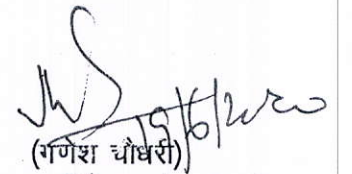 19/6/2020
(गणेश चौधरी)